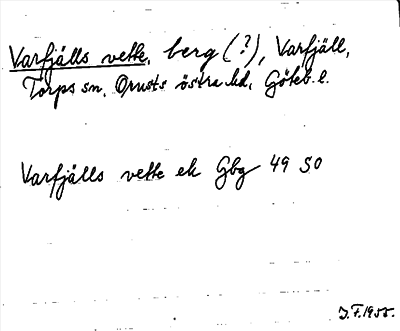 Varfjälls vette, berg (?), Varfjäll,
Torps sn, Orusts östra hd, Göteb. l.
Varfjälls vette ek Gbg 49 SO
J.F. 1955.